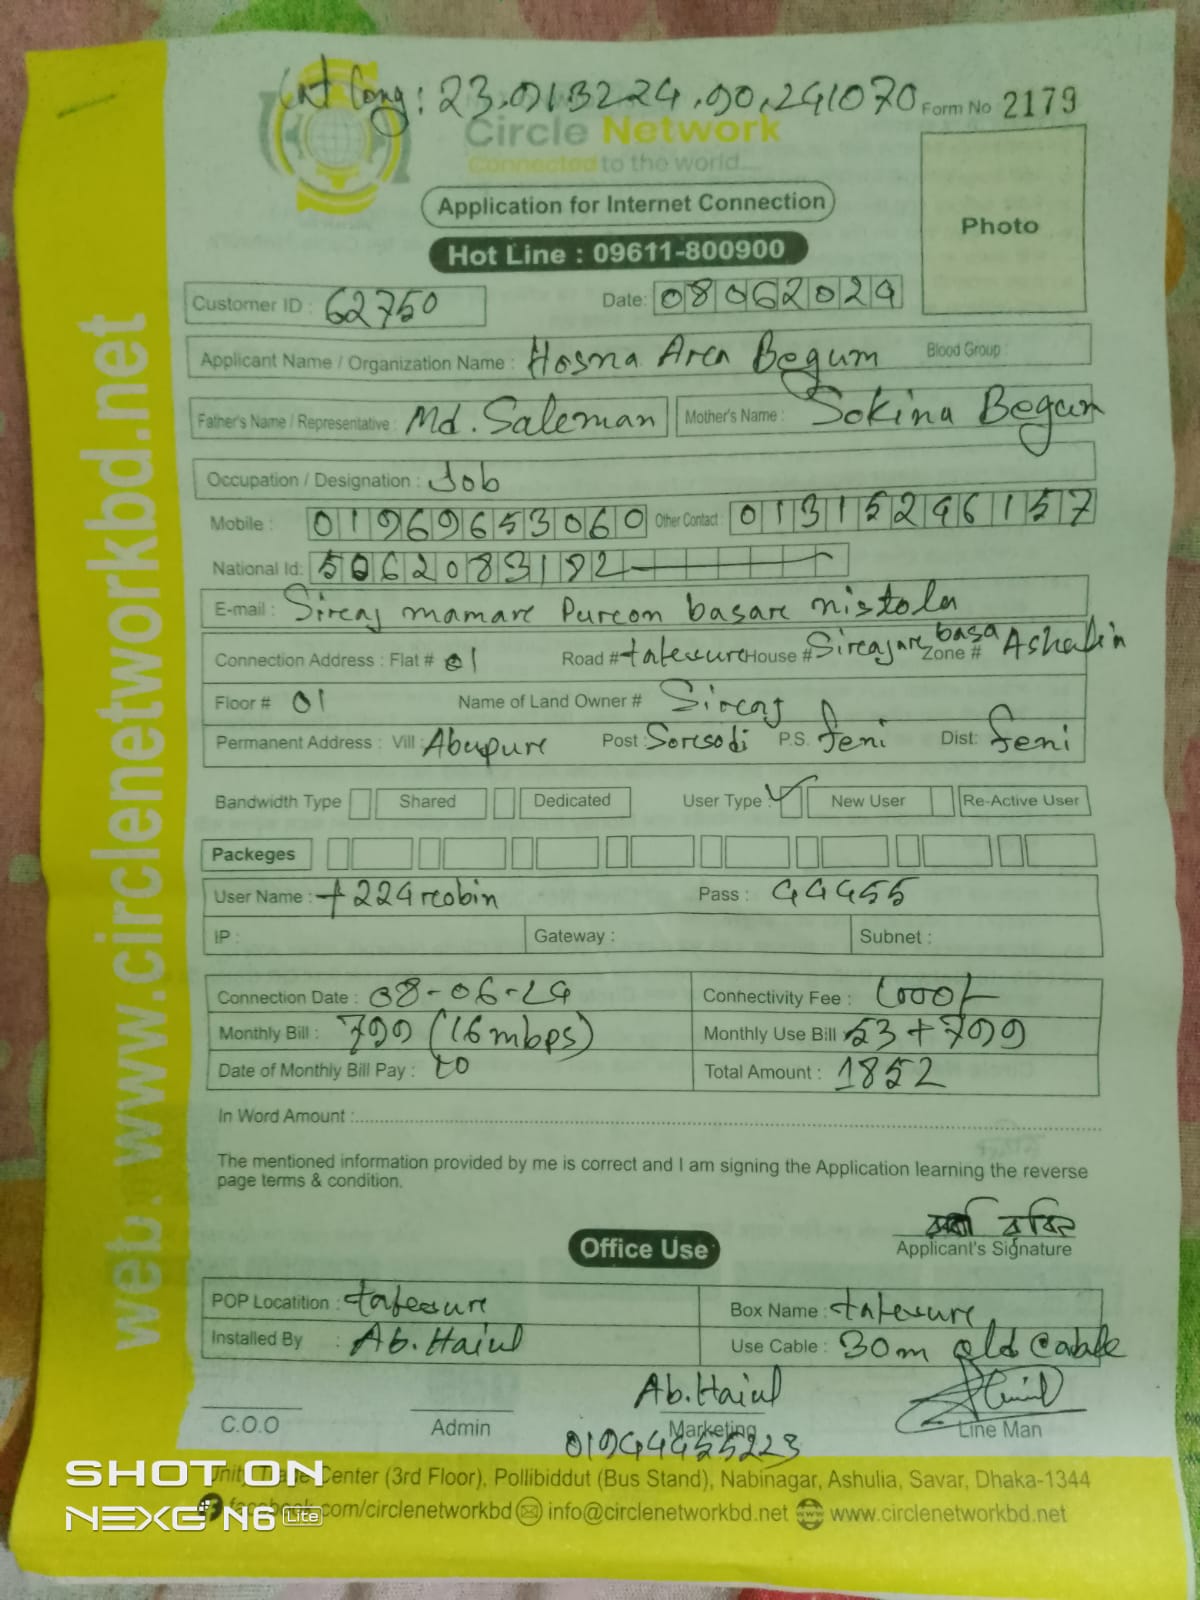 Lat Long: 23.013224.90.241070
Form No 2179
Circle Network
Connected to the world....
Application for Internet Connection
Photo
Hot Line : 09611-800900
Customer ID : 62750 Date: 08062024
Applicant Name / Organization Name : Hosna Area Begum Blood Group :
Father's Name / Representative : Md. Saleman Mother's Name : Sokina Begum
Occupation / Designation : Job
Mobile : 01969653060 Other Contact : 01315246157
National Id: 5062083182
E-mail : Siraj mamare Purcon basare nistola
Connection Address : Flat # 01 Road # House # basa Zone #
Floor # 01 Name of Land Owner # Siraj
Permanent Address : Vill : Abupure Post Soresodi P.S. feni Dist: feni
Bandwidth Type Shared Dedicated User Type New User Re-Active User
Packeges
User Name : t224robin Pass : 44455
IP : Gateway : Subnet :
Connection Date : 08-06-24 Connectivity Fee : 1000/-
Monthly Bill : 799 (16mbps) Monthly Use Bill 53+799
Date of Monthly Bill Pay : 10 Total Amount : 1852
In Word Amount :
The mentioned information provided by me is correct and I am signing the Application learning the reverse
page terms & condition.
রবিন
Applicant's Signature
Office Use
POP Locatition : Box Name :
Installed By : Ab. Haiul Use Cable : 30m old Cable
Ab. Haiul
C.O.O Admin Marketing Line Man
01944455223
Unity Trade Center (3rd Floor), Pollibiddut (Bus Stand), Nabinagar, Ashulia, Savar, Dhaka-1344
facebook.com/circlenetworkbd info@circlenetworkbd.net www.circlenetworkbd.net
web: www.circlenetworkbd.net
SHOT ON
NEXG N6 Lite